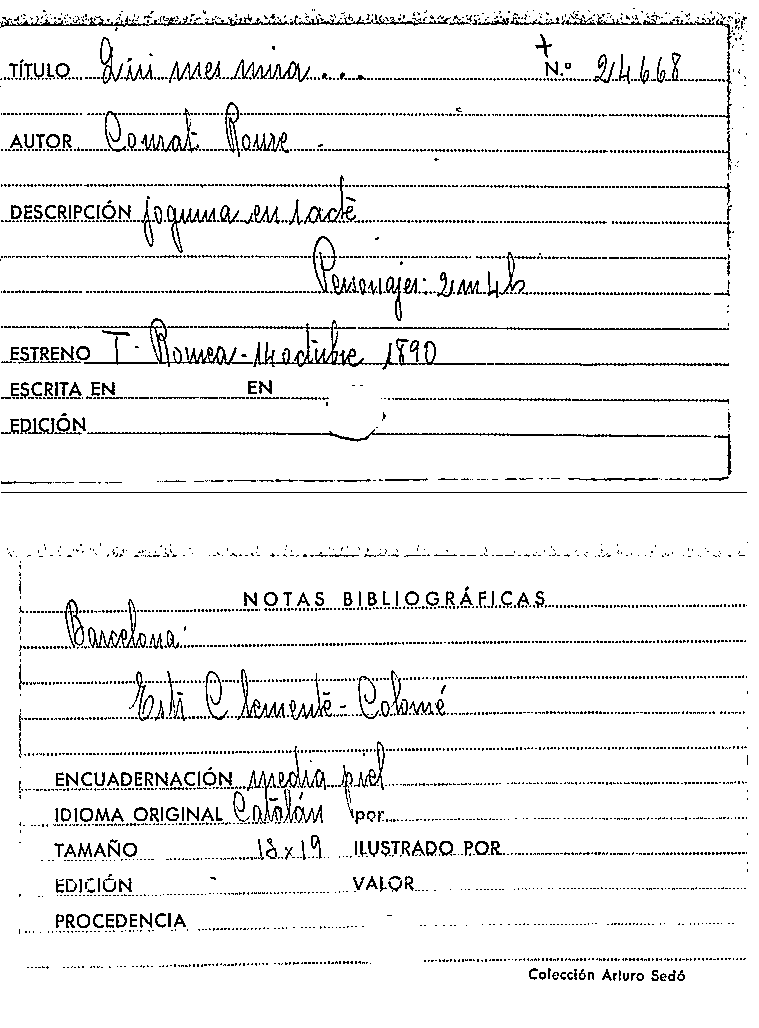 TÍTULO Qui mes mira... N.º 24668
AUTOR Conrat Roure.
DESCRIPCIÓN joguina en 1 acte
Personajes: 2 m 4 h
ESTRENO T. Romea - 14 octubre 1890
ESCRITA EN EN
EDICIÓN
NOTAS BIBLIOGRÁFICAS
Barcelona:
Colomé
ENCUADERNACIÓN media piel
IDIOMA ORIGINAL Catalán por
TAMAÑO x 19 ILUSTRADO POR
EDICIÓN VALOR
PROCEDENCIA
Colección Arturo Sedó